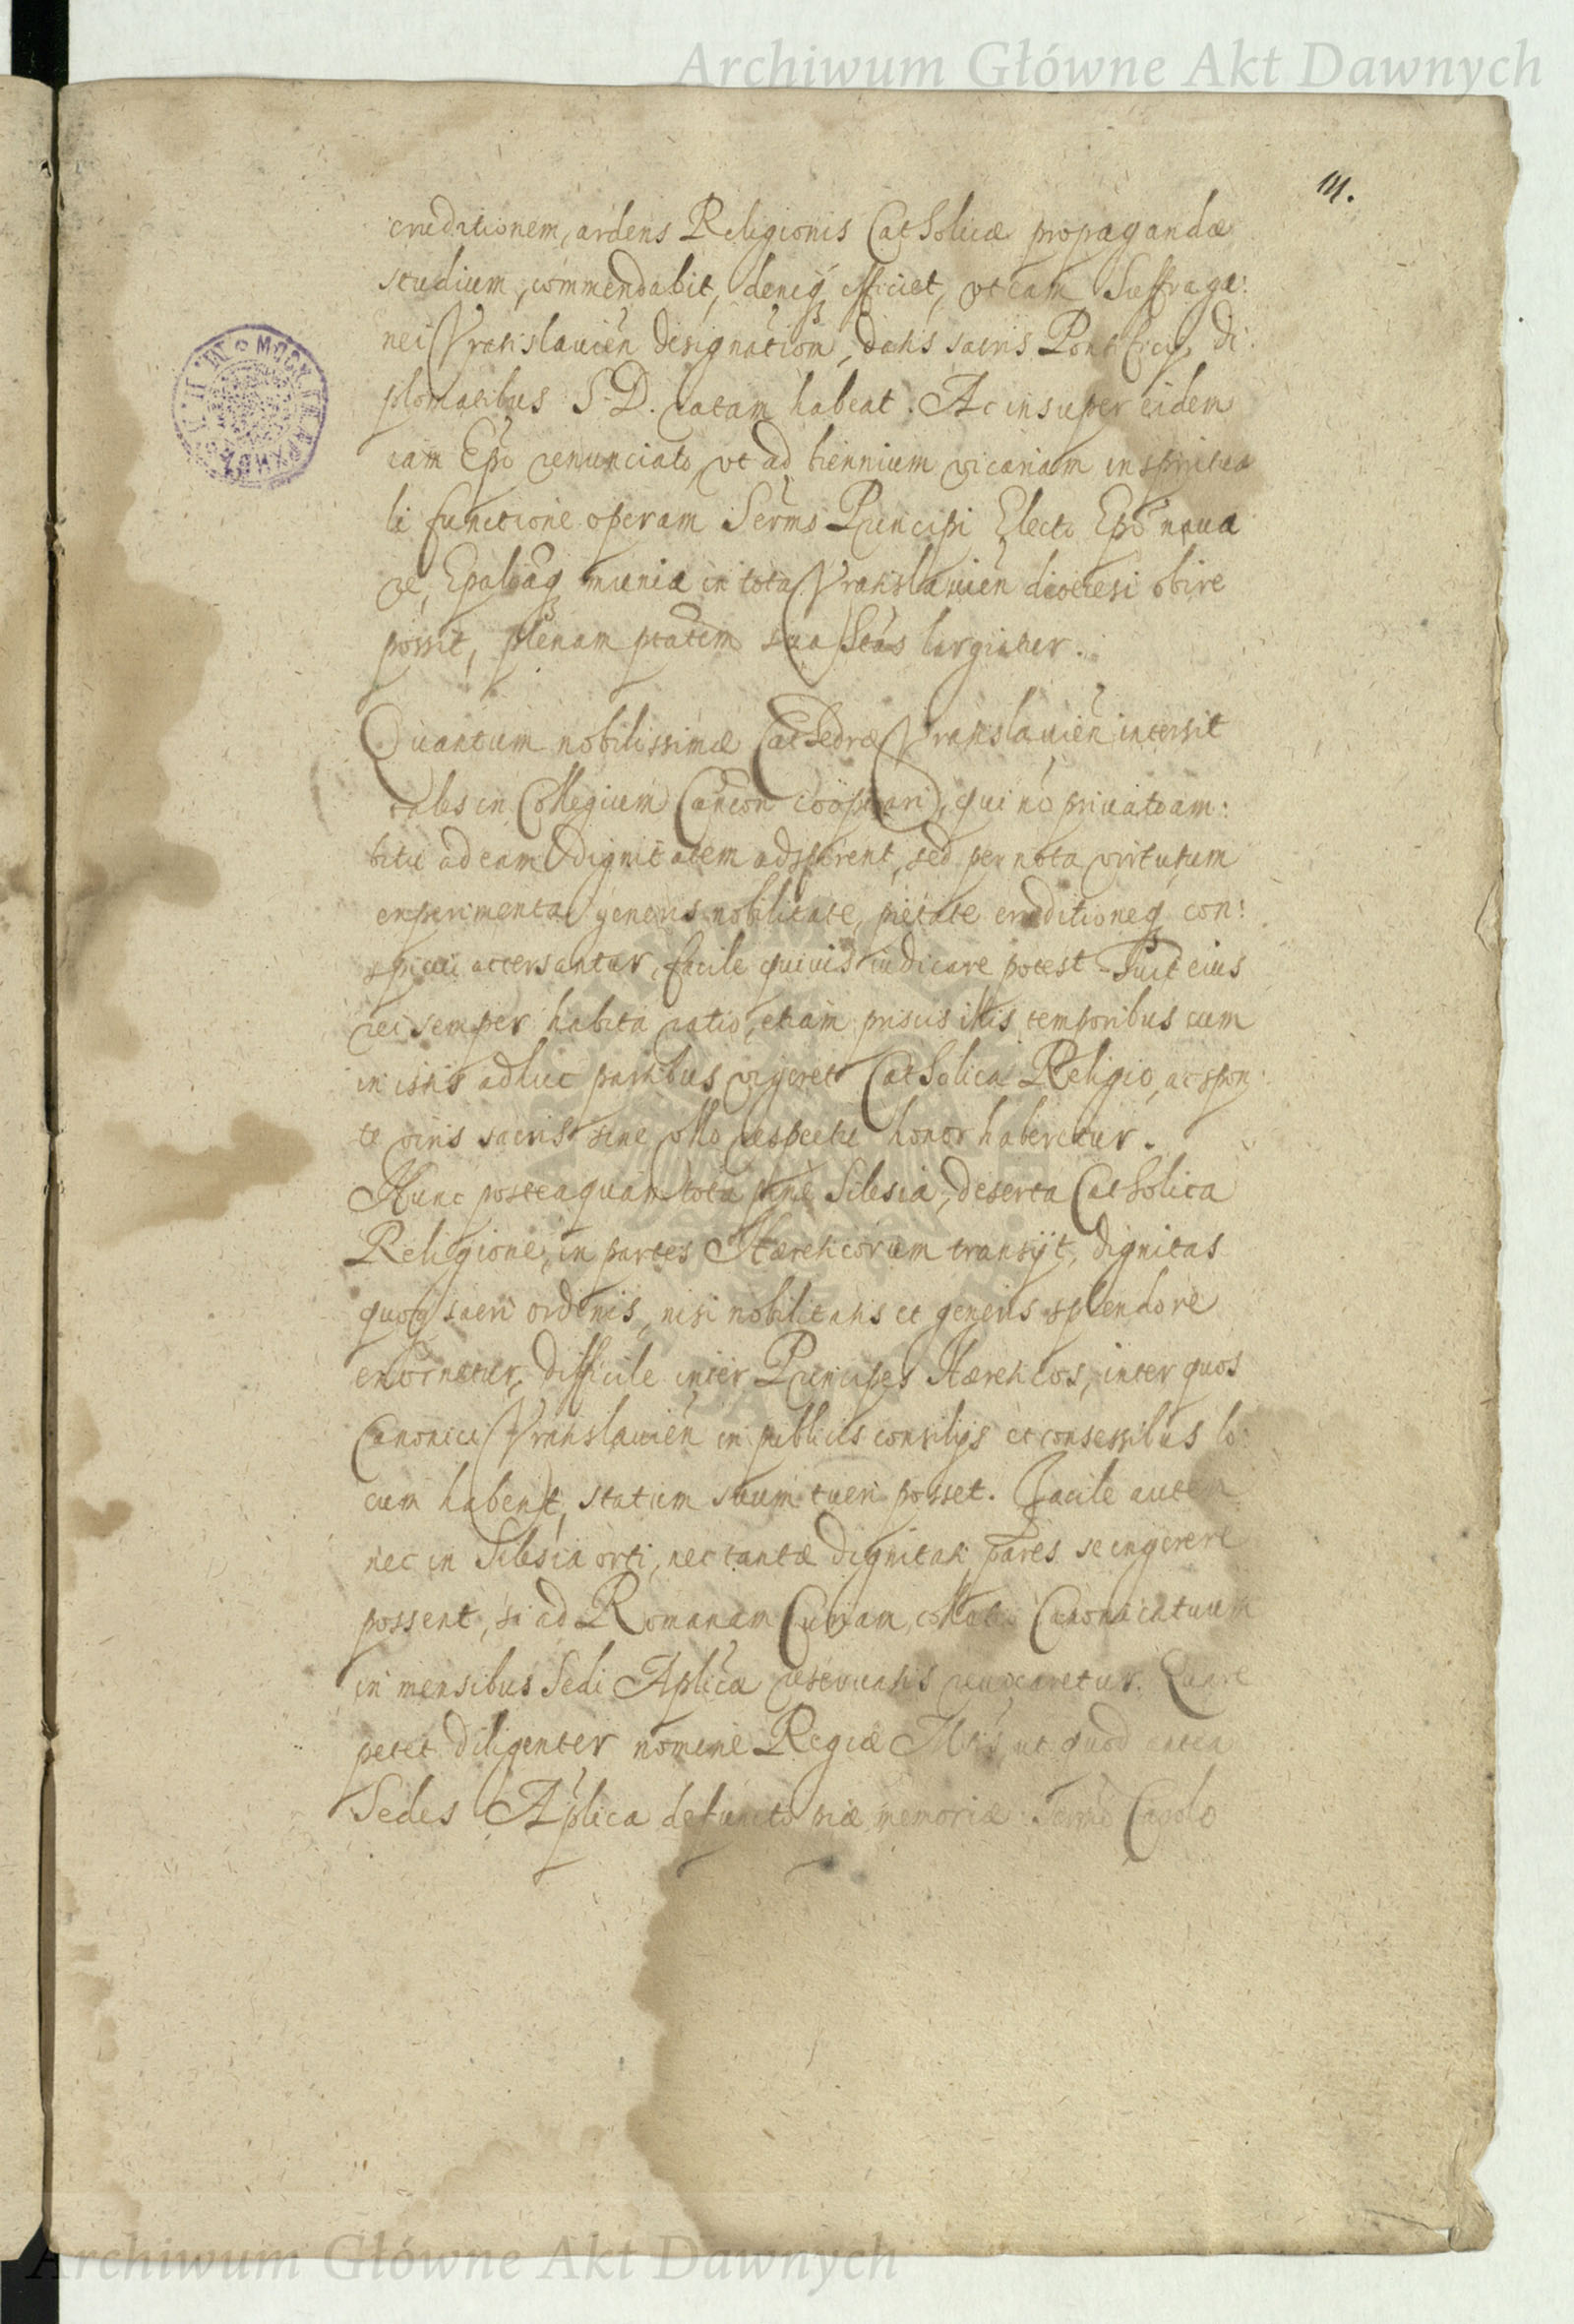 Archiwum Główne Akt Dawnych
111.
eruditionem, ardens Religionis Catholicæ propagandæ
studium, commendabit, deniq₃ efficiet, vt eam Suffraga:
nei Vratislauien̄ designation̄, datis sacris Pontificijs di:
plomatibus S. D. ratam habeat. Ac insuper eidem
iam Ep̄o renunciato, vt ad triennium vicariam in spiritua
li functione operam Ser̄mo Principi Electo Ep̄o naua
re, Ep̄aliaq₃ munia in tota Vratislauien̄ dioecesi obire
possit, plenam p̄tatem sua S̄tas largiatur.
Quantum nobilissimæ Cathedræ Vratislauien̄ intersit
tales in Collegium Canon̄ cooptari, qui nō priuato am:
bitu ad eam dignitatem adspirent, sed per nota virtutum
experimenta, generis nobilitate, pietate eruditioneq₃ con:
spicui accersantur, facile quiuis iudicare potest. Fuit eius
rei semper habita ratio, etiam priscis illis temporibus cum
in istis adhuc partibus vigeret Catholica Religio, ac spon:
te viris sacris sine vllo respectu honor haberetur.
Nunc posteaquam tota pene Silesia, deserta Catholica
Religione, in partes Hæreticorum transijt, dignitas
quoq₃ sacri ordinis, nisi nobilitatis et generis splendore
exornetur, difficile inter Principes Hæreticos, inter quos
Canonici Vratislauien̄ in publicis consilijs et consessibus lo:
cum habent, statum suum tueri posset. Facile autem
nec in Silesia orti, nec tantæ dignitati pares se ingerere
possent, si ad Romanam Curiam, collatio Canonicatuum
in mensibus Sedi Ap̄licæ reseruatis reuocaretur. Quare
petet diligenter nomine Regiæ M̄tis, ut quod antea
Sedes Ap̄lica defuncto piæ memoriæ Ser̄mo Carolo
Archiwum Główne Akt Dawnych